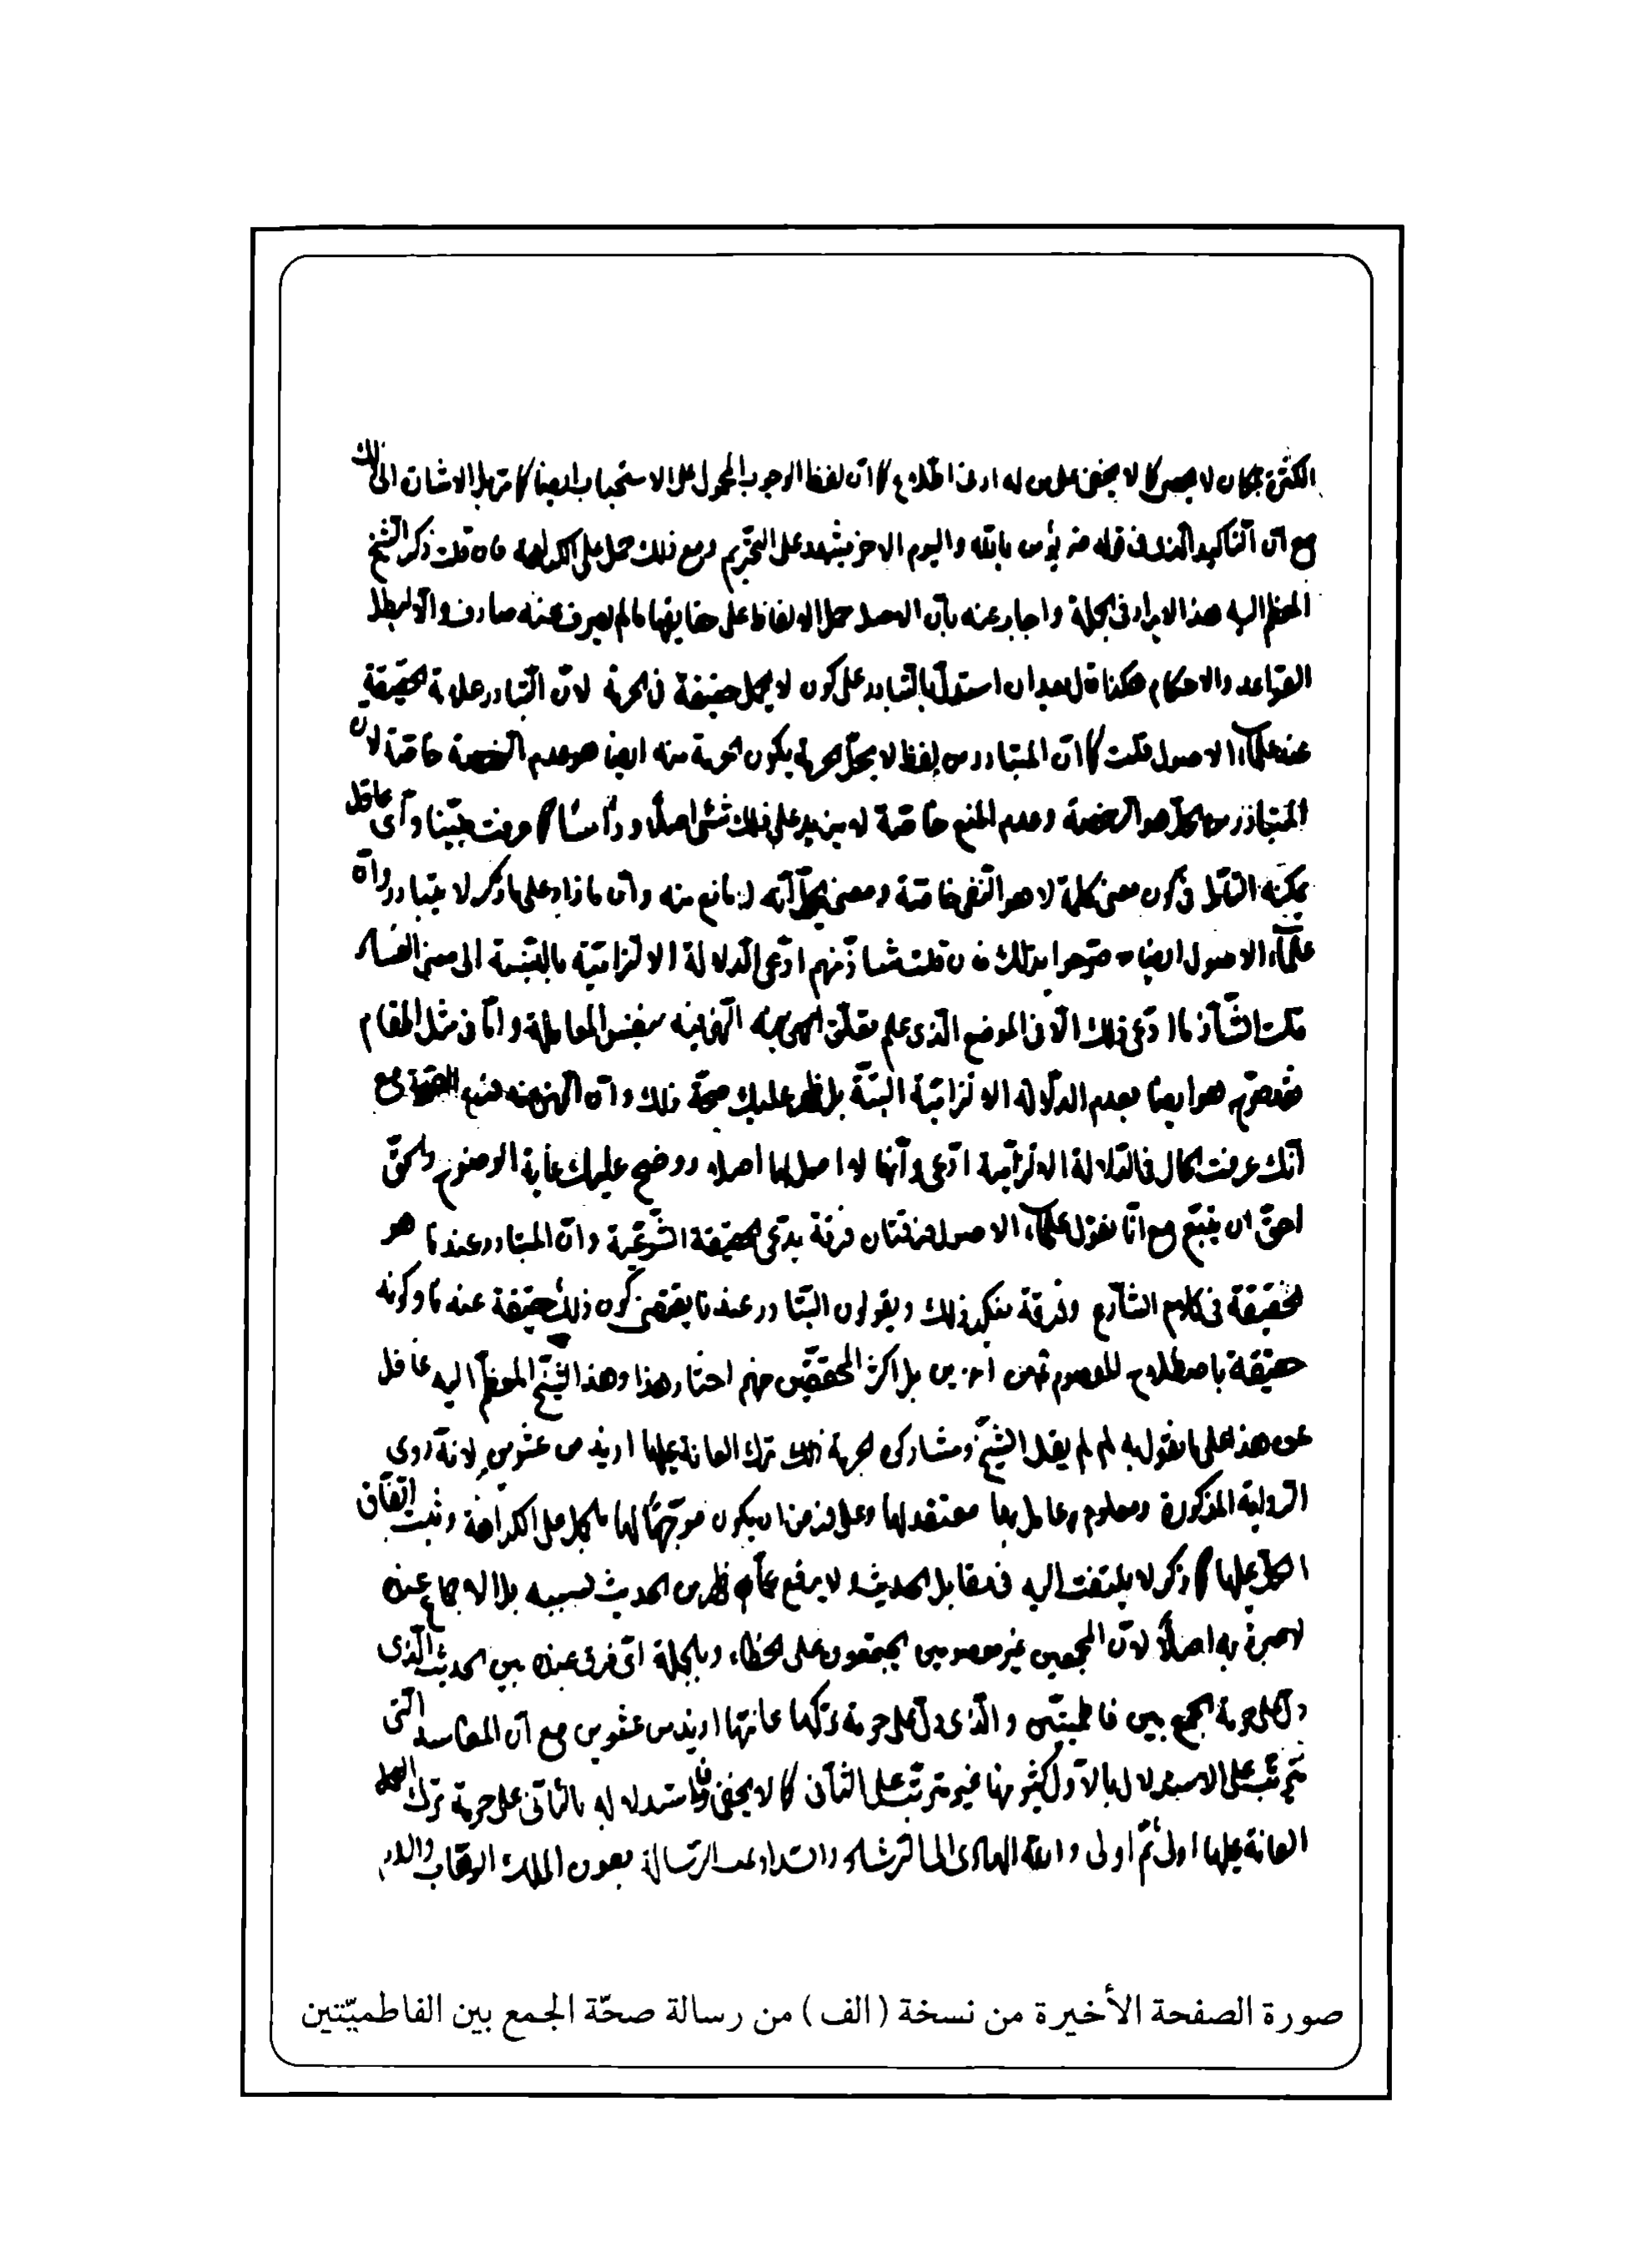 الكثرة بمكان لا يحصى كما لا يخفى على من له ادنى اطلاع كما ان لفظ الوجوب المحمول على الاستحباب ايضا كك مر الاشارة الى ذلك
مع ان التأكيد الذى فى قوله من يؤمن بالله واليوم الاخر يشهد على التحريم ومع ذلك حمل على الكراهة فان قلت ذكر الشيخ
المعظم اليه هذا الايراد فى الجملة واجاب عنه بأن الاصل حمل الالفاظ على حقايقها ما لم يصرف عنه صارف والا لبطل
القواعد والاحكام هكذا قال بعد ان استدل بالتبادر على كون لا يحل حقيقة فى الحرمة لان التبادر علامة الحقيقة
عند علماء الاصول قلت كما ان المتبادر من لفظ لا يحل الحرمة يكون الحرمة منه ايضا هو عدم الرخصة خاصة لان
المتبادر من يحل هو الرخصة وعدم المنع خاصة لا يزيد على ذلك شئ اصلا ورأسا كما عرفت مبينا وأى عاقل
يمكنه التأمل فى كون معنى كلمة لا هو النفى خاصة ومعنى يحل أنه لا مانع منه وأن ما زاد على ما ذكر لا يتبادر وأن
علماء الاصول ايضا صرحوا بذلك فان قلت شاذ منهم ادعى الدلالة الالتزامية بالنسبة الى معنى الفساد
قلت الشاذ ما ادعى ذلك الا فى الموضع الذى علم تعلق النهى فيه بنفس المعاملة واما فى مثل المقام
فقد صرح هو ايضا بعدم الدلالة الالتزامية البتة بل ظهر عليك صحة ذلك وان النهى عنه مع
أنك عرفت الحال فى الدلالة الالتزامية ادعى وأنها لا اصل لها اصلا ووضح عليك غاية الوضوح والحق
احق ان يتبع مع انا نقول علماء الاصول فرقتان فرقة يدعى الحقيقة الشرعية وان المتبادر عندنا هو
الحقيقة فى كلام الشارع وفرقة ينكر ذلك ويقولون التبادر عندنا يقتضى كون ذلك حقيقة عندنا وكونه
حقيقة باصطلاح المعصوم من اين بل اكثر المحققين منهم اختار هذا وهذا الشيخ المعظم اليه غافل
عن هذا على ما نقول به لم لم يقل الشيخ ومشاركى لحرمة ذلك ترك العانة عليها ازيد من عشرين لانه روى
الرواية المذكورة ومعلوم عامل بها معتقد لها وعلى فرض ان يكون موجها لها بالحمل على الكراهة وثبت اتفاق
الكل عليها كما ذكر لا يلتفت اليه فى مقابل الحديث ولا يرفع عما ظهر من الحديث بسببه بل الاجماع عنده
لا عبرة به اصلا لان المجمعين غير معصومين يجتمعون على الخطاء وبالجملة اى فرق عنده بين الحديث الذى
دل على حرمة الجمع بين فاطميتين والذى دل على حرمة تركها عانتها ازيد من عشرين مع ان المفاسد التى
يترتب على الاستدلال بالاول كثير منها غير مترتب على الثانى كما لا يخفى فاستدلاله بالثانى على حرمة ترك
العانة عليها اولى ثم اولى والله الهادى الى الرشاد الرسالة بعون الملك الوهاب
صورة الصفحة الأخيرة من نسخة (الف) من رسالة صحّة الجمع بين الفاطميّتين